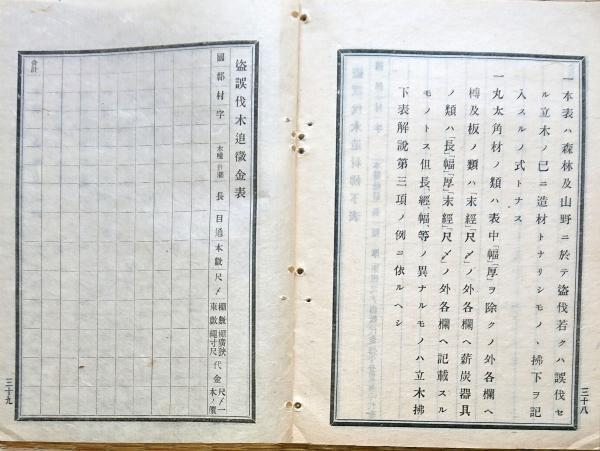 一本表ハ森林及山野ニ於テ盜伐若クハ誤伐セ
ル立木ノ已ニ造材トナリシモノヽ拂下ヲ記
入スルノ式トナス
一丸太角材ノ類ハ表中「幅」「厚」ヲ除クノ外各欄ヘ
榑及板ノ類ハ「末經」「尺〆」ノ外各欄ヘ薪炭器具
ノ類ハ「長」「幅」「厚」「末經」「尺〆」ノ外各欄ヘ記載スル
モノトス但長、經、幅、等ノ異ナルモノハ立木拂
下表解說第三項ノ例ニ依ルヘシ
三十八
盜誤伐木追徵金表
國郡村字
木種
長
目通
本數
尺〆
棚數
束數
代金
合計
三十九